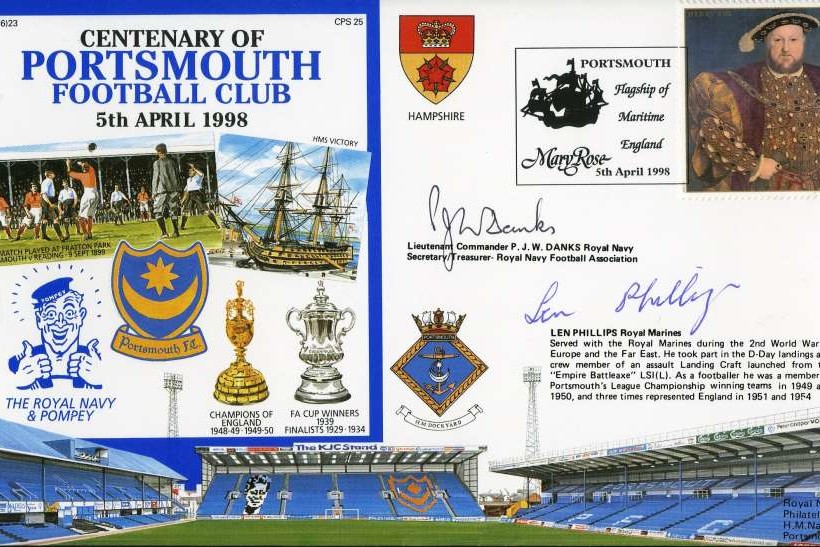 6)23
CPS 25
CENTENARY OF
PORTSMOUTH
FOOTBALL CLUB
5th APRIL 1998
HMS VICTORY
MATCH PLAYED AT FRATTON PARK
MOUTH v READING - 9 SEPT 1899
POMPEY
Portsmouth F.C.
THE ROYAL NAVY
& POMPEY
CHAMPIONS OF
ENGLAND
1948-49 · 1949-50
FA CUP WINNERS
1939
FINALISTS 1929 · 1934
HAMPSHIRE
PORTSMOUTH
Flagship of
Maritime
England
Mary Rose
5th April 1998
PJW Danks
Lieutenant Commander P. J. W. DANKS Royal Navy
Secretary/Treasurer- Royal Navy Football Association
Len Phillips
LEN PHILLIPS Royal Marines
Served with the Royal Marines during the 2nd World War
Europe and the Far East. He took part in the D-Day landings a
crew member of an assault Landing Craft launched from t
"Empire Battleaxe" LSI(L). As a footballer he was a member
Portsmouth's League Championship winning teams in 1949 a
1950, and three times represented England in 1951 and 1954
H.M. DOCKYARD
The KJC Stand
P F C
Royal N
Philatel
H.M.Na
Portsmo